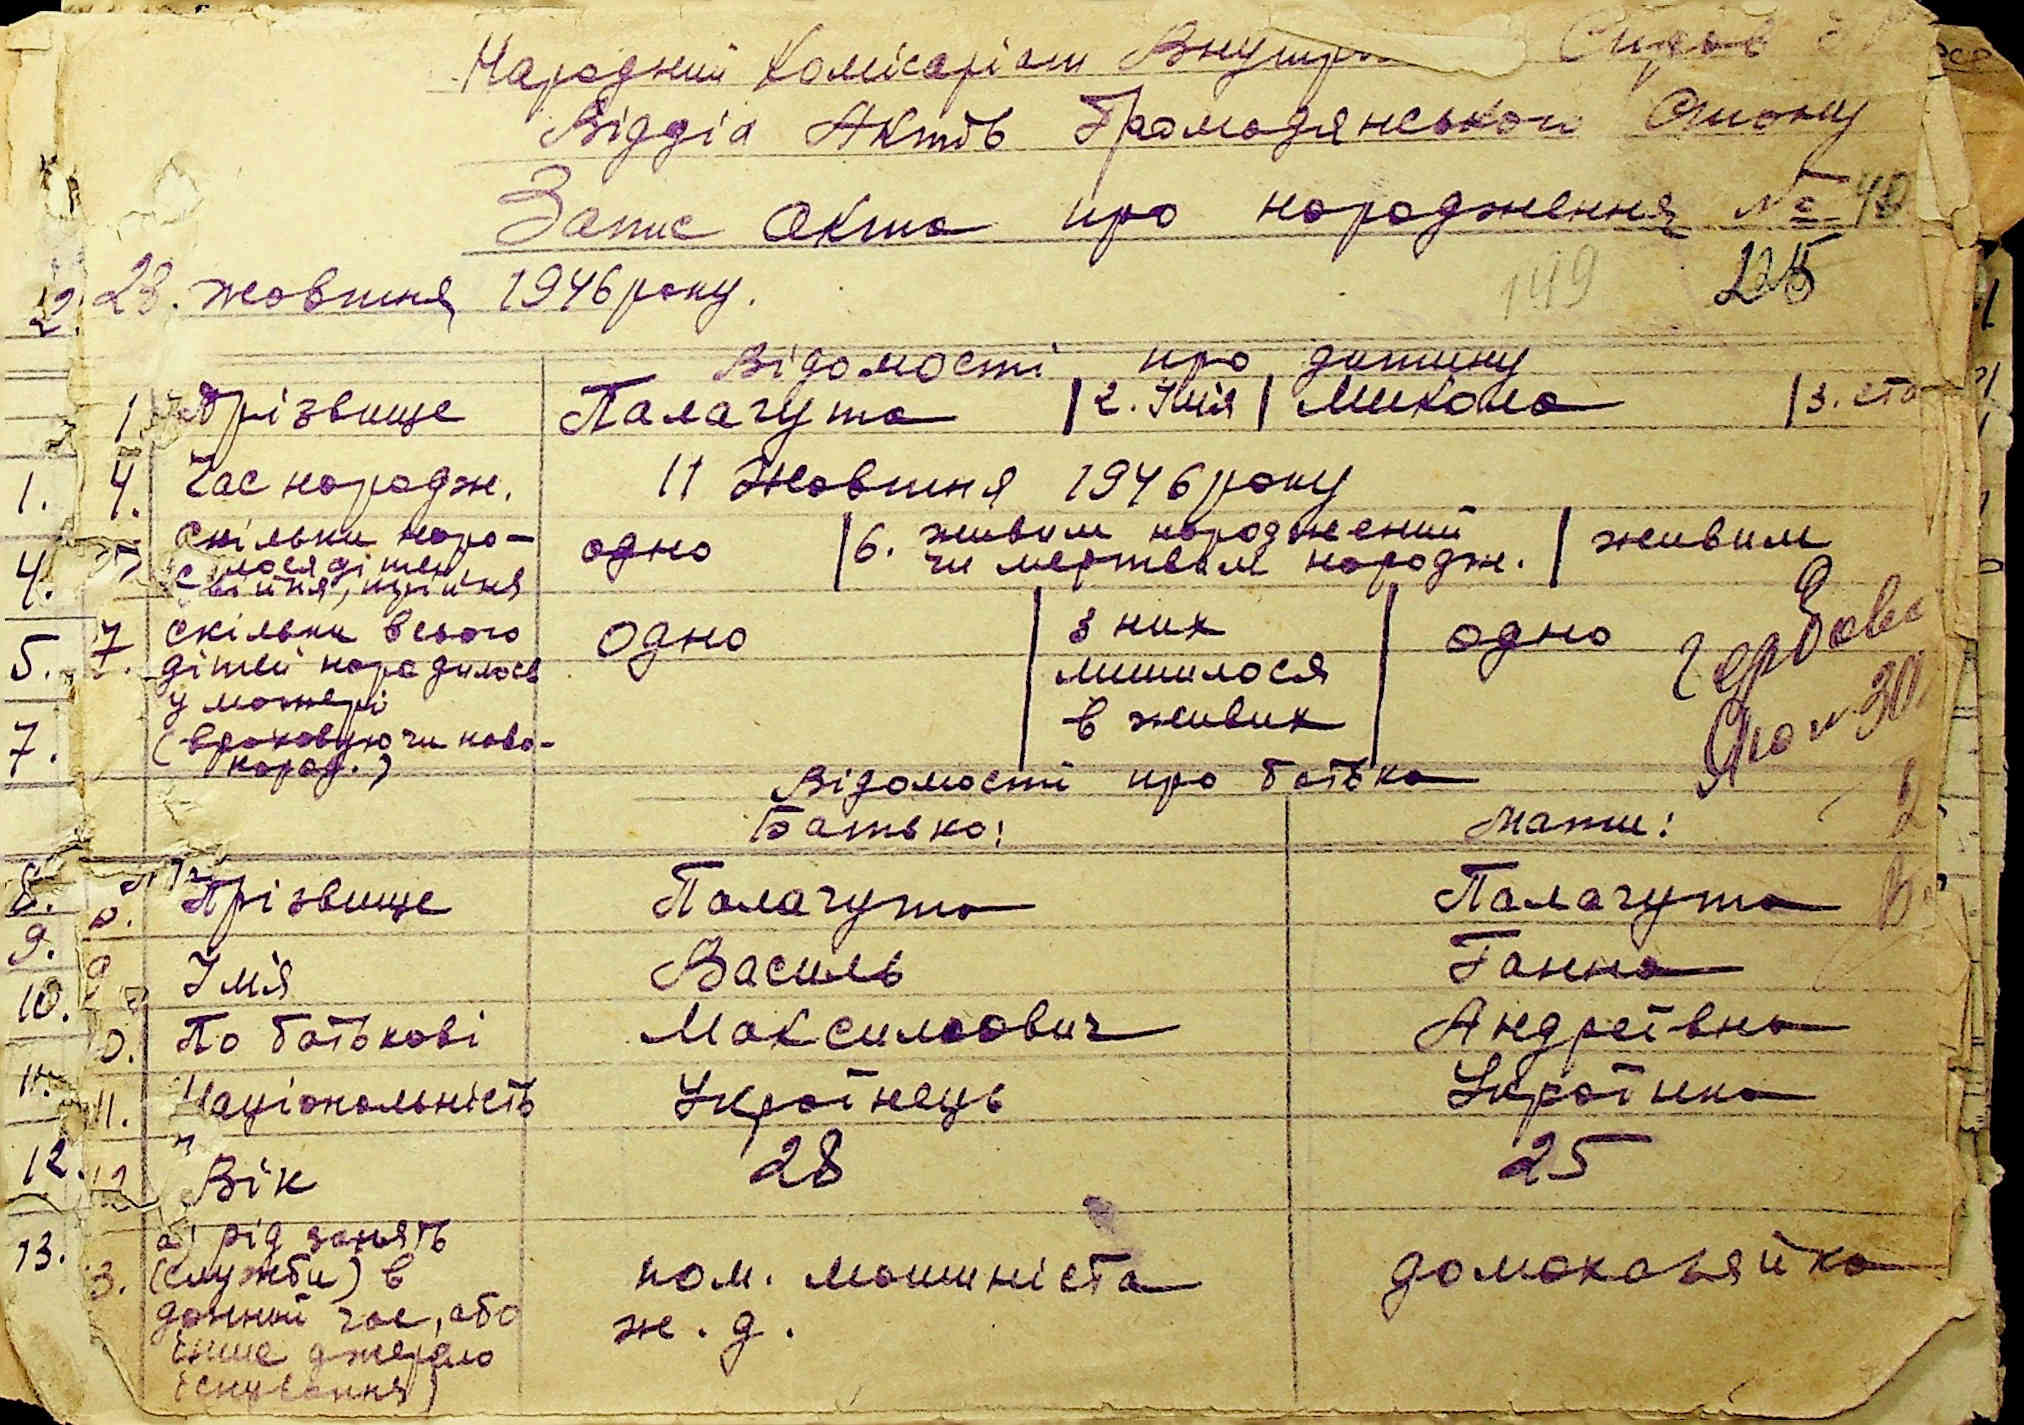 Народний Комісаріат Внутр Справ
Відділ Актів Громадянського Стону
Запис акта про народження № 40
28. жовтня 1946 року. 149 225
Відомості про дитину
1 Прізвище Палагута | 2. Імія | Микола | 3. ста
4. Час народж. 11 Жовтня 1946 року
Скільки наро- одно | 6. живим народжений чи мертвим народж. | живим
лося дітей
двійня, трійня
7. Скільки всього одно | з них лишилося в живих | одно
дітей народилось
у матері
(враховуючи ново-
народ.)
Відомості про батька
Батько: Мати:
8. Прізвище Палагута Палагута
9 Імія Василь Ганна
10. По батькові Максимович Андреївна
11. Національність Українець Українка
12 Вік 28 25
13. а) рід занять пом. машиніста домохазяйка
(служби) в ж. д.
данний час, або
інше джерело
існування)
1.
4.
5.
7.
8.
9.
10.
11.
12.
13.